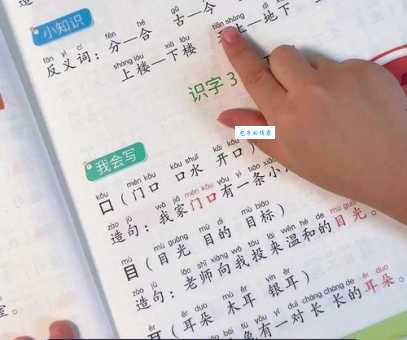 小知识
fǎn yì cí fēn hé gǔ
反义词：分—合 古—今
shàng lóu xià lóu
上楼—下楼 上—地下
识字3
我会写
kǒu mén kǒu kǒu shuǐ kāi kǒu
口（门口 口水 开口）
zào jù wǒ jiā mén kǒu yǒu yì tiáo xiǎo
造句：我家门口有一条小
mù mù guāng mù dì mù biāo
目（目光 目的 目标）
zào jù lǎo shī xiàng wǒ tóu lái wēn hé de mù guāng
造句：老师向我投来温和的目光。
ěr ěr duo mù ěr yín ěr
耳（耳朵 木耳 银耳）
tù yǒu yí duì cháng cháng de ěr duo
兔有一对长长的耳朵。
室。